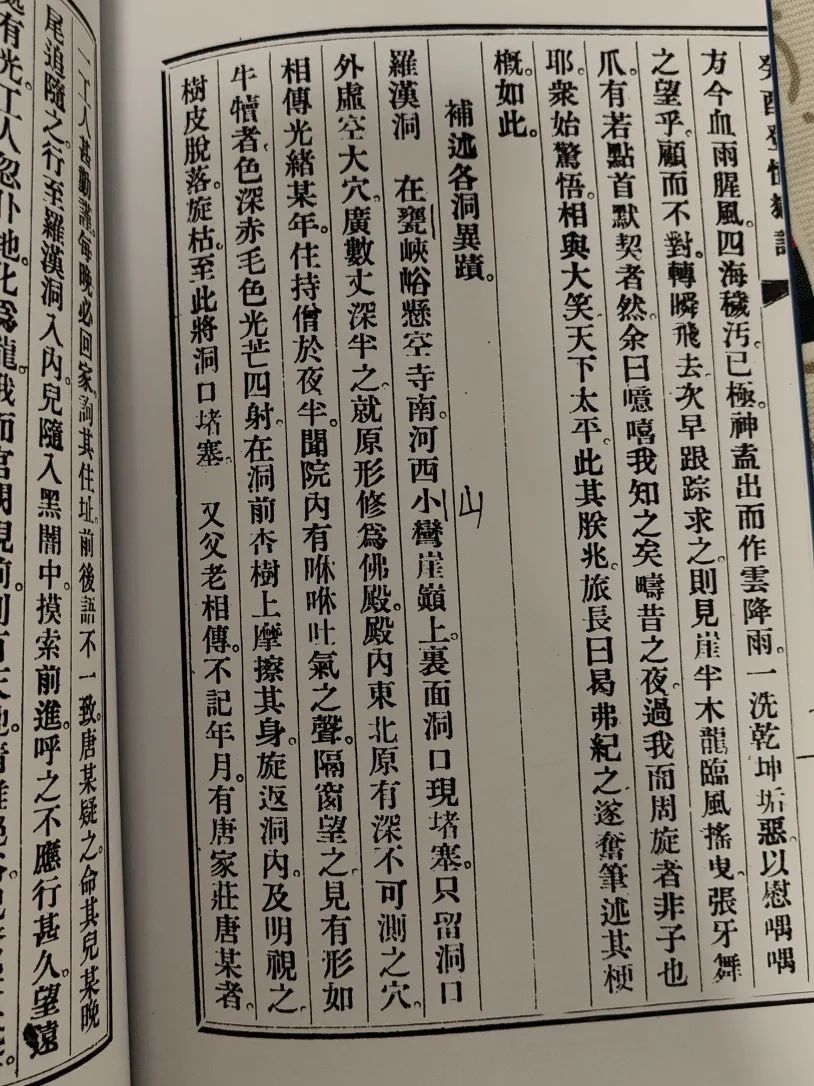 癸酉登恆雜記
方今血雨腥風。四海穢汚已極。神盍出而作雲降雨。一洗乾坤垢惡。以慰喁喁
之望乎。顧而不對。轉瞬飛去。次早跟踪求之。則見崖半木龍臨風搖曳。張牙舞
爪。有若點首默契者然。余曰噫嘻我知之矣。疇昔之夜。過我而周旋者非子也
耶。衆始驚悟。相與大笑。天下太平。此其朕兆。旅長曰曷弗紀之。遂奮筆述其梗
槪如此。
補述各洞異蹟。
羅漢洞　在甕峽峪懸空寺南。河西小巒崖巔上。裏面洞口現堵塞。只留洞口
山
外虛空大穴。廣數丈深半之。就原形修爲佛殿。殿內東北原有深不可測之穴。
相傳光緒某年。住持僧於夜半。聞院內有咻咻吐氣之聲。隔窗望之。見有形如
牛犢者。色深赤毛色光芒四射。在洞前杏樹上摩擦其身。旋返洞內。及明視之。
樹皮脫落。旋枯。至此將洞口堵塞。　又父老相傳。不記年月。有唐家莊唐某者。
一工人甚勤謹。每晚必回家。詢其住址。前後語不一致。唐某疑之。命其兒某晚
尾追隨之。行至羅漢洞入內。兒隨入黑闇中。摸索前進。呼之不應。行甚久。望遠
處有光。工人忽仆地。化爲龍。